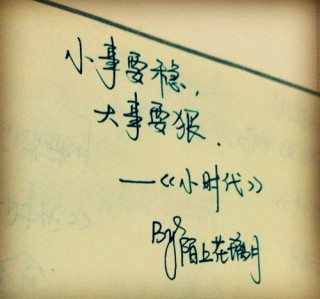 小事要稳,
大事要狠.
——《小时代》
By 陌上花满月